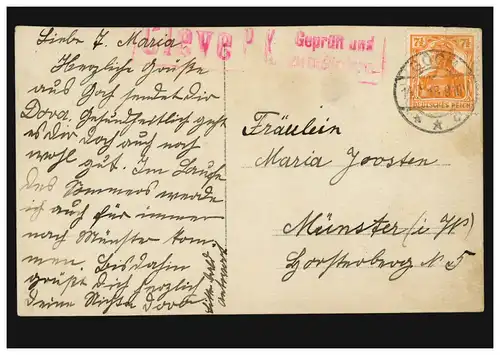 Liebe T. Maria
Herzliche Grüße
aus Goch sendet dir
Dora. Gesundheitlich geht
es dir doch auch noch
wohl gut. Im Laufe
des Sommers werde
ich auch für immer
nach Münster kom-
men. Bis dahin
grüßt dich herzlich
deine Nichte Dora
Bitte bald
Antwort
Cleve
Geprüft und
7½ 7½
GOCH
DEUTSCHES REICH
Fräulein
Maria Joosten
Münster (i. W)
Horsterberg N 5